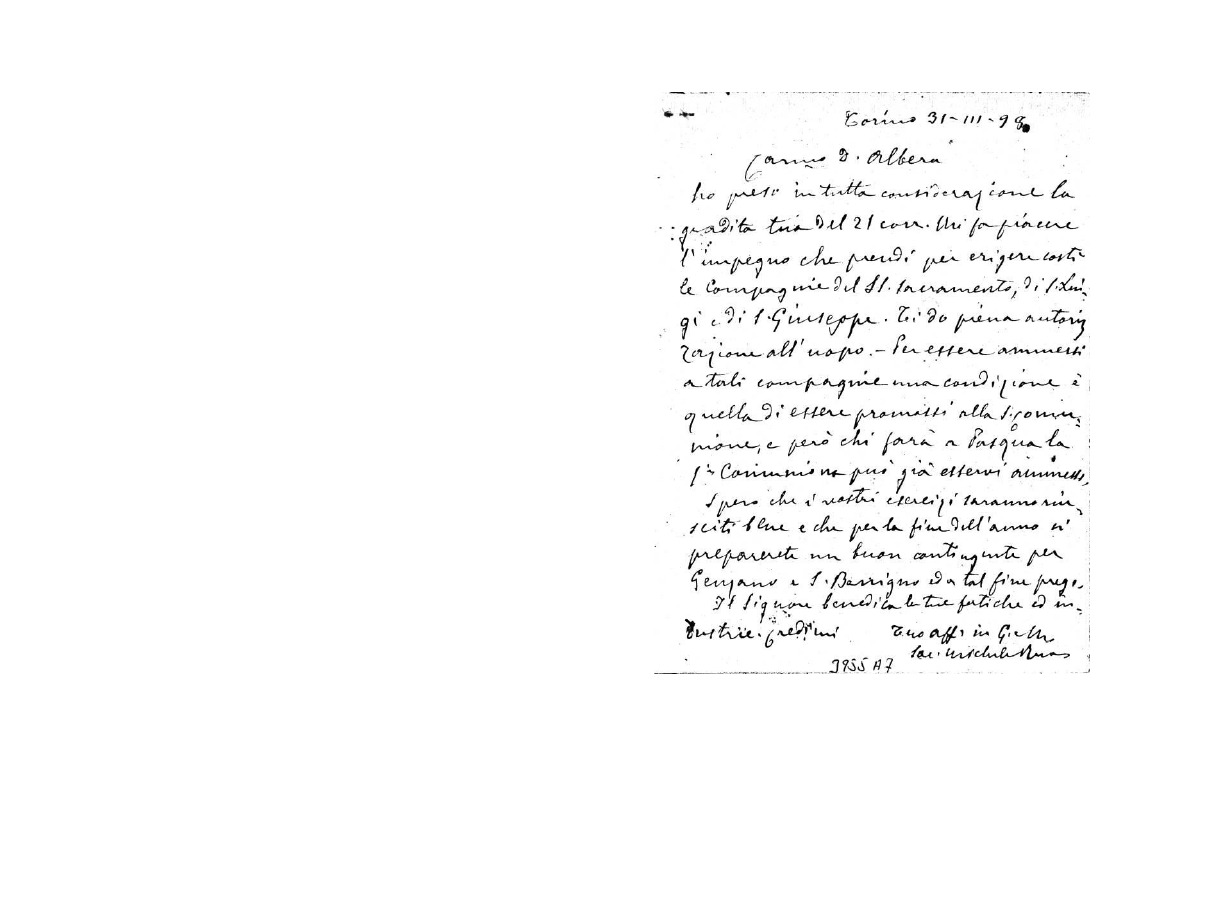 Torino 31-III-98
Carmo D. Albera
ho preso in tutta considerazione la
gradita tua del 21 corr. Mi fa piacere
l'impegno che prendi per erigere costì
le Compagnie del SS. Sacramento, di S. Lui-
gi e di S. Giuseppe. Ti do piena autoriz
zazione all'uopo. - Per essere ammessi
a tali compagnie una condizione è
quella di essere promossi alla S. comu-
nione, e però chi farà a Pasqua la
1ª Comunione può già esservi ammesso.
Spero che i vostri esercizi saranno riu-
sciti bene e che per la fine dell'anno vi
preparerete un buon contingente per
Genzano e S. Benigno ed a tal fine prego.
Il Signore benedica le tue fatiche ed in-
dustrie. Credimi Tuo aff. in G. e M.
Sac. Michele Rua
3955 A7